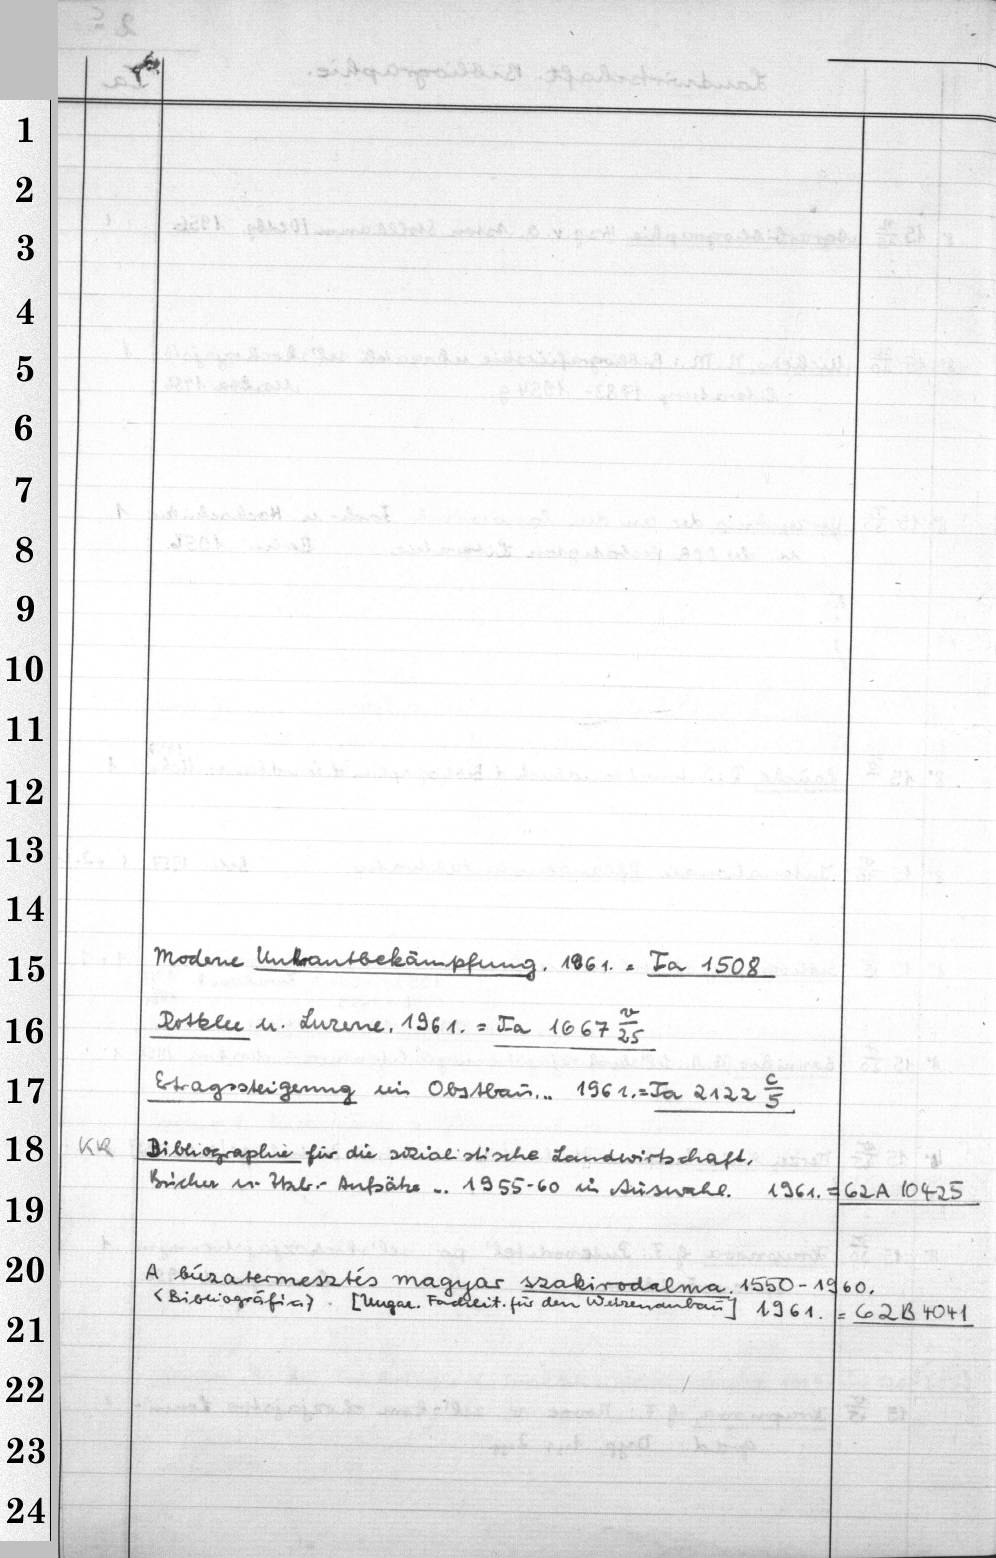 1
2
3
4
5
6
7
8
9
10
11
12
13
14
15
Moderne Unkrautbekämpfung. 1961. = Ia 1508
16
Rotklee u. Luzerne. 1961. = Ia 1667 v/25
17
Ertragssteigerung im Obstbau... 1961. = Ia 2122 c/5
18
KR Bibliographie für die sozialistische Landwirtschaft.
19
Bücher u. Ztschr.- Aufsätze .. 1955-60 in Auswahl. 1961. = 62A 10425
20
A búzatermesztés magyar szakirodalma. 1550-1960.
<Bibliográfia>. [Ungar. Fachlit. für den Weizenanbau] 1961. = 62B 4041
21
22
23
24